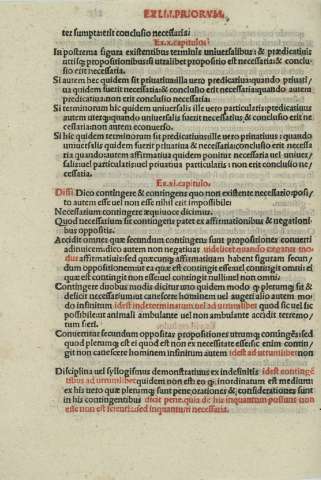 EX LI.I. PRIORVM.
ter sumpta erit conclusio necessaria:
Ex.x.capitulo.
In postrema figura existentibus terminis uniuersalibus: & predicatiuis
utrisq; propositionibus: si utralibet propositio est necessaria: & conclu/
sio erit necessaria.
Si autem hec quidem sit priuatiua illa uero predicatiua: quando priuati/
ua quidem fuerit necessaria: & conclusio erit necessaria: quando autem
predicatiua: non erit necessaria:
Si terminorum hic quidem uniuersalis ille uero particularis: predicatiuis
autem utrisq; quando uniuersalis fuerit necessarius: & conclusio erit ne
cessaria: non autem econuerso.
Si hic quidem terminorum sit predicatiuus: ille uero priuatiuus: quando
uniuersalis quidem fuerit priuatiua & necessaria: conclusio erit necessa
ria quando autem affirmatiua quidem ponitur necessaria uel uniuer/
salis: uel particularis: uel priuatiua particularis: non erit conclusio ne/
cessaria.
Ex.xi.capitulo.
Dico contingere & contingens quo non existente necessario: posi/
to autem esse uel non esse nihil erit impossibile:
Necessarium contingere equiuoce dicimus.
Quod necessarium sit contingens patet ex affirmationibus & negationi/
bus oppositis.
Accidit omnes que secundum contingens sunt propositiones conuerti
adinuicem: dico autem non negatiuas
affirmatiuas: sed quecunq; affirmatiuam habent figuram secun/
dum oppositionem: ut ea que est contingit esse: uel contingit omni: ei
que est contingit non esse: uel contingit nulli: uel non omni.
Contingere duobus modis dicitur: uno quidem modo quod plerunq;
fit & deficit necessarium: ut canescere hominem: uel augeri: alio autem mo
do infinitum idest indeterminatum uel ad utrumlibet quod sic uel sic
possibile: ut animali ambulante uel non ambulante accidit terremo/
tum fieri.
Conuertitur secundum oppositas propositiones utrumq; contingens: sed
quod plerunq; est ei quod est non ex necessitate esse: sic enim contin/
git non canescere hominem: infinitum autem idest ad utrumlibet non
Disciplina uel syllogismus demonstratiuus ex indefinitis idest contingé
tibus ad utrumlibet quidem non est: eo q inordinatum est medium:
ex his uero que plerunq; sunt pene orationes & considerationes sunt
in his contingentibus dicit pene. quia de his inquantum possunt non
esse non est scientia: sed inquantum necessaria.